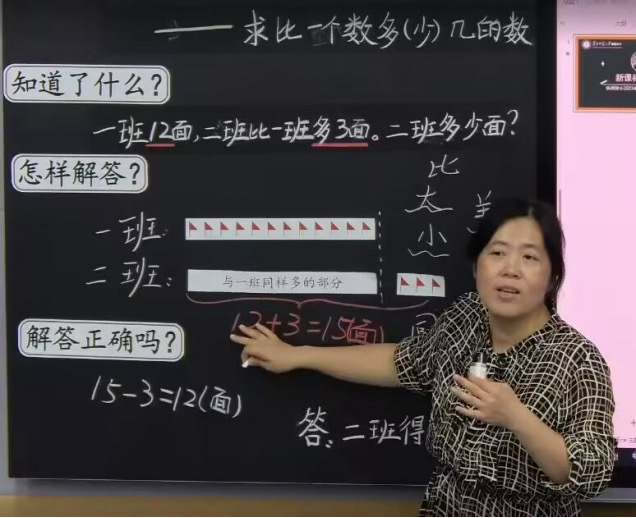 ——求比一个数多(少)几的数
知道了什么?
一班12面,二班比一班多3面。二班多少面?
怎样解答?
比
太
小
一班:
二班:
与一班同样多的部分
+3=15(面)
解答正确吗?
15-3=12(面)
答:二班得
新课